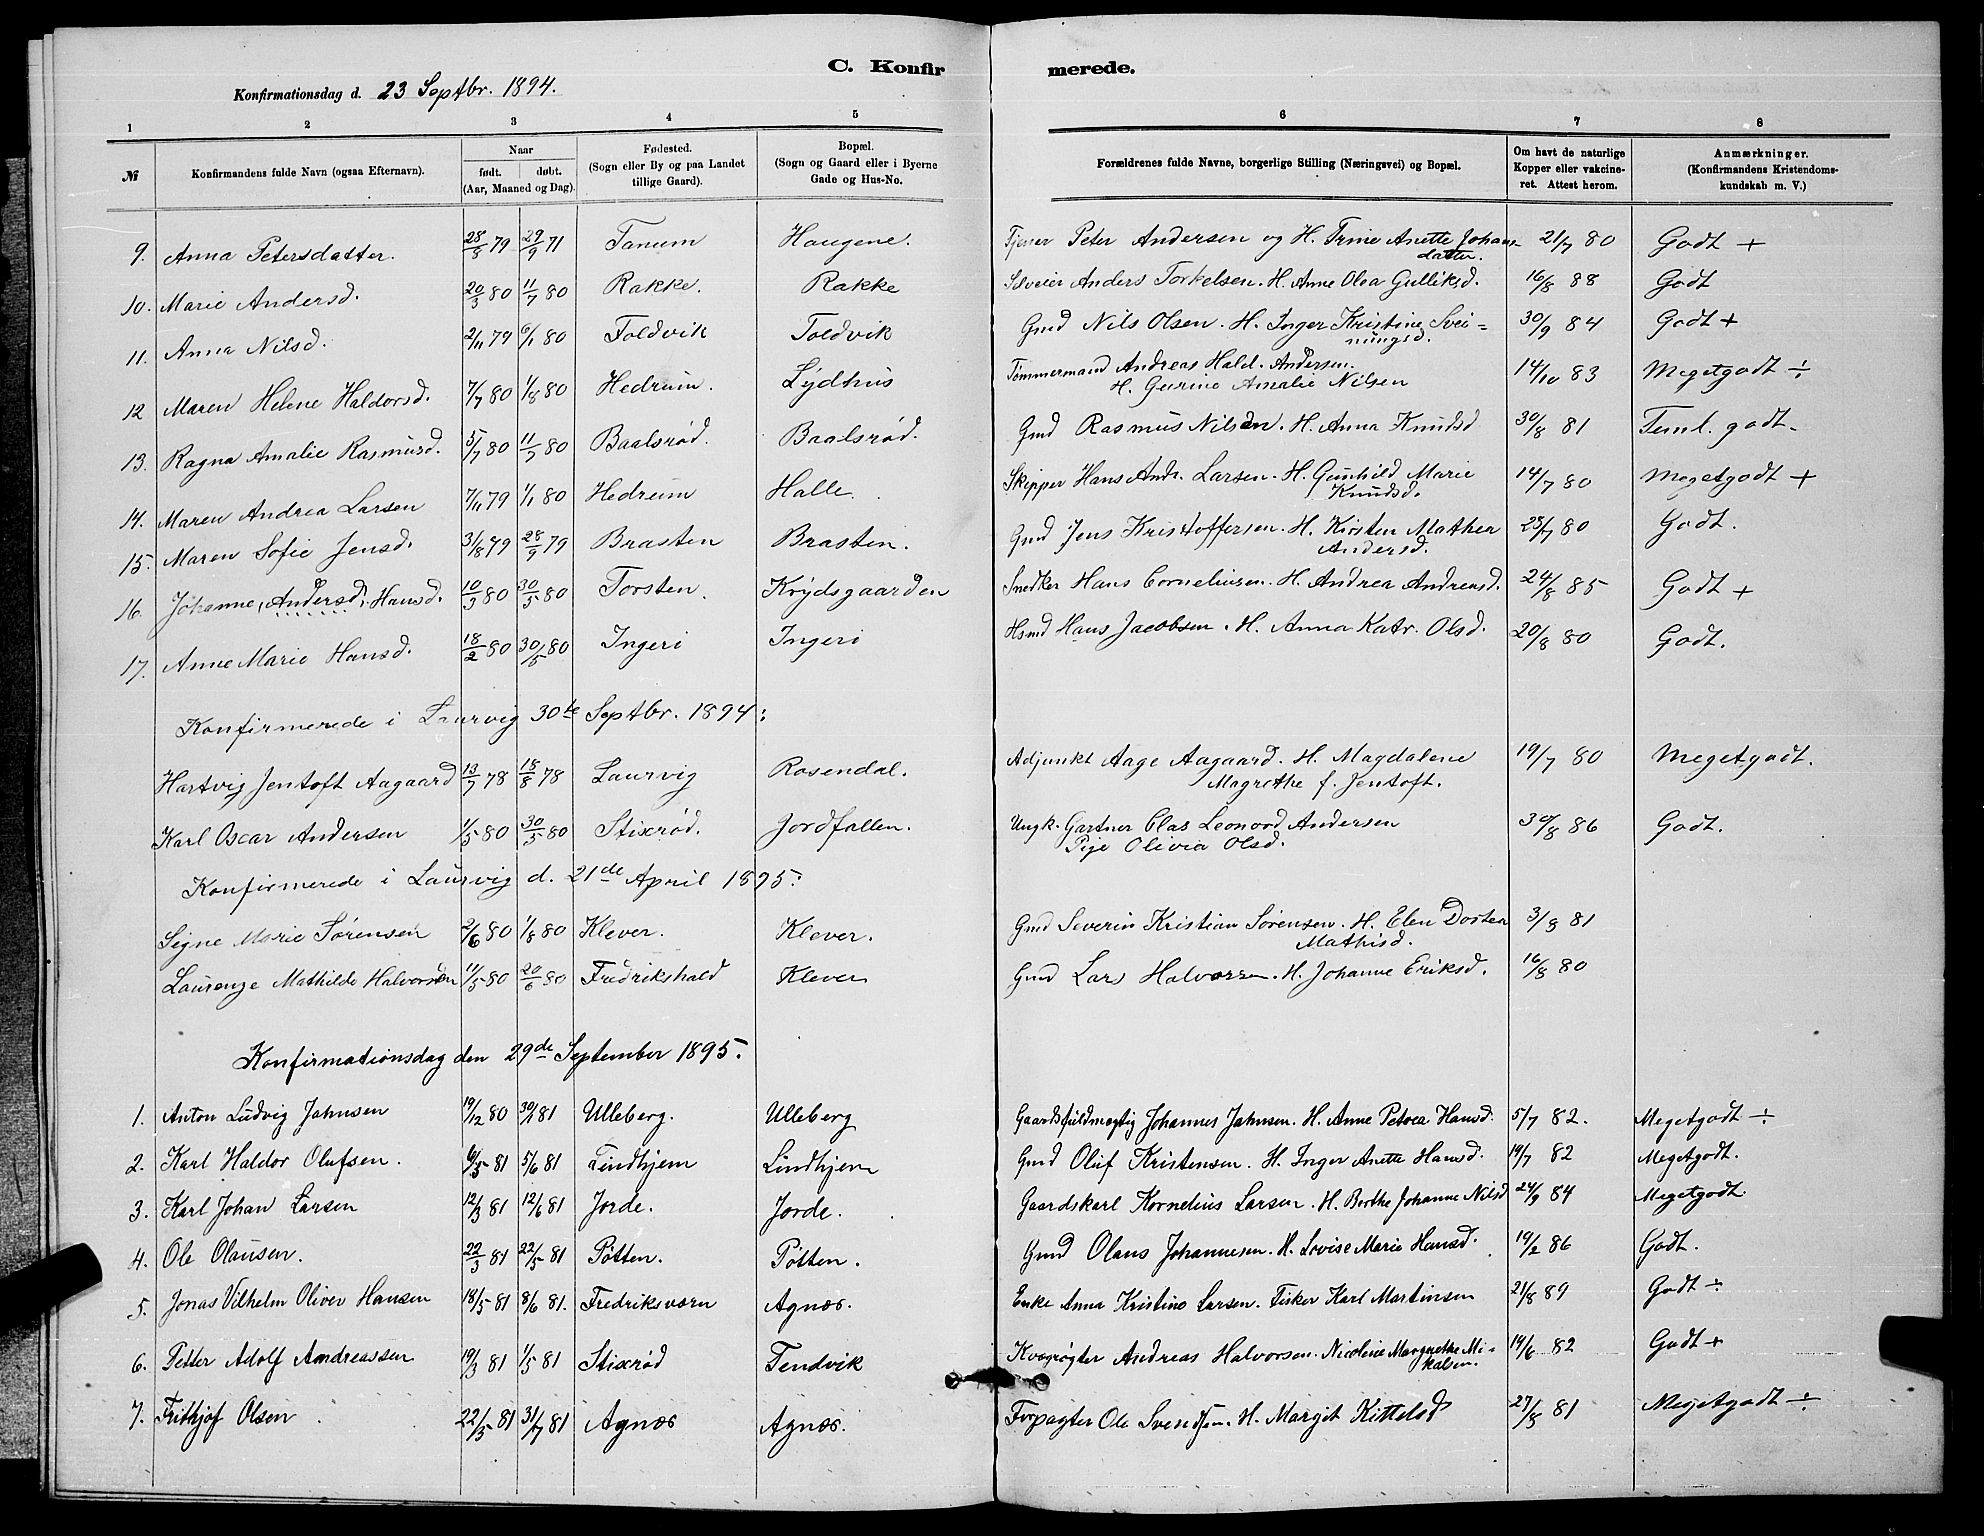 C. Konfirmerede.
Konfirmationsdag d. 23 Septbr. 1894.
1 2 3 4 5 6 7 8
№ Konfirmandens fulde Navn (ogsaa Efternavn). Naar født. døbt. (Aar, Maaned og Dag). Fødested. (Sogn eller By og paa Landet tillige Gaard). Bopæl. (Sogn og Gaard eller i Byerne Gade og Hus-No. Forældrenes fulde Navne, borgerlige Stilling (Næringsvei) og Bopæl. Om havt de naturlige Kopper eller vakcineret. Attest herom. Anmærkninger. (Konfirmandens Kristendomskundskab m. V.)
9. Anna Petersdatter. 28/8 79 29/9 71 Tanum Haugene. Peter Andersen og H. Trine Anette Johansdatter. 21/7 80 Godt +
10. Marie Andersd. 20/3 80 11/7 80 Rakke. Rakke Anders Torkelsen. H. Anne Olea Gulliksd. 16/8 88 Godt
11. Anna Nilsd. 2/11 79 6/1 80 Foldvik Foldvik Gmd Nils Olsen. H. Inger Kristine Sveinungsd. 30/9 84 Godt +
12 Maren Helene Haldorsd. 7/7 80 1/8 80 Hedrum. Lydhus Tømmermand Andreas Hald. Andersen. H. Gurine Amalie Nilsen 14/10 83 Megetgodt ÷
13. Ragna Amalie Rasmusd. 5/7 80 11/7 80 Baalsrød. Baalsrød. Gmd Rasmus Nilsen. H. Anna Knudsd 30/8 81 Teml. godt.
14. Maren Andrea Larsen 7/11 79 1/1 80 Hedrum Halle. Skipper Hans Andr. Larsen. H. Gunhild Marie Knudsd. 14/7 80 Megetgodt +
15. Maren Sofie Jensd. 31/8 79 28/9 79 Brasten Brasten. Gmd Jens Kristoffersen. H. Kirsten Mathea Andersd. 23/7 80 Godt.
16. Johanne, Andersd, Hansd. 10/3 80 30/5 80 Torsten. Krydsgaarden Snedker Hans Corneliusen. H. Andrea Andreasd. 24/8 85 Godt +
17. Anne Marie Hansd. 18/2 80 30/5 80 Ingeri Ingeri Hsmd Hans Jacobsen. H. Anna Katr. Olsd. 20/8 80 Godt.
Konfirmerede i Laurvig 30te Septbr. 1894:
Hartvig Jentoft Aagaard 13/7 78 18/8 78 Laurvig Rosendal. Adjunkt Aage Aagaard. H. Magdalene Magrethe f. Jentoft. 19/7 80 Megetgodt.
Karl Oscar Andersen 1/5 80 30/5 80 Stixrød. Jordfallen. Ungk. Gartner Clas Leonord Andersen Pige Olivia Olsd. 30/8 86 Godt.
Konfirmerede i Laurvig d. 21de April 1895:
Signe Marie Sørensen 2/6 80 1/8 80 Klever. Klever. Gmd Severin Kristian Sørensen. H. Elen Dortea Mathisd. 3/8 81
Laurenze Mathilde Halvorsen 11/5 80 20/6 80 Fredrikshald Klever Gmd Lars Halvorsen. H. Johanne Eriksd. 16/8 80
Konfirmationsdag den 29de September 1895.
1. Anton Ludvig Jahnsen 19/12 80 30/1 81 Ulleberg. Ulleberg Gaardsfuldmægtig Johannes Jahnsen. H. Anne Petrea Hansd. 5/7 82. Megetgodt ÷
2. Karl Haldor Olufsen. 6/5 81 5/6 81 Lindhjem Lindhjem Gmd Oluf Kristensen. H. Inger Anette Hansd. 19/7 82 Megetgodt.
3. Karl Johan Larsen 12/3 81 12/6 81 Jorde. Jorde. Gaardskarl Kornelius Larsen. H. Berthe Johanne Nilsd 24/9 84 Megetgodt.
4. Ole Olausen. 22/3 81 22/5 81 Pøtten. Pøtten. Gmd Olaus Johannesen. H. Lovise Marie Hansd. 19/2 86 Godt.
5. Jonas Vilhelm Oliver Hansen 18/5 81 8/6 81. Fredriksværn Agnæs. Enke Anna Kristine Larsen. Fisker Karl Martinsen 21/8 89 Godt ÷
6. Petter Adolf Andreassen 19/3 81 1/5 81 Stixrød Tendvik Kvægrøgter Andreas Halvorsen. Nicoline Margrethe Mikalsen. 19/6 82 Godt +
7. Frithjof Olsen 22/5 81 31/7 81 Agnæs Agnæs. Forpagter Ole Svendsen. H. Margit Kittelsd 27/8 81 Megetgodt ÷